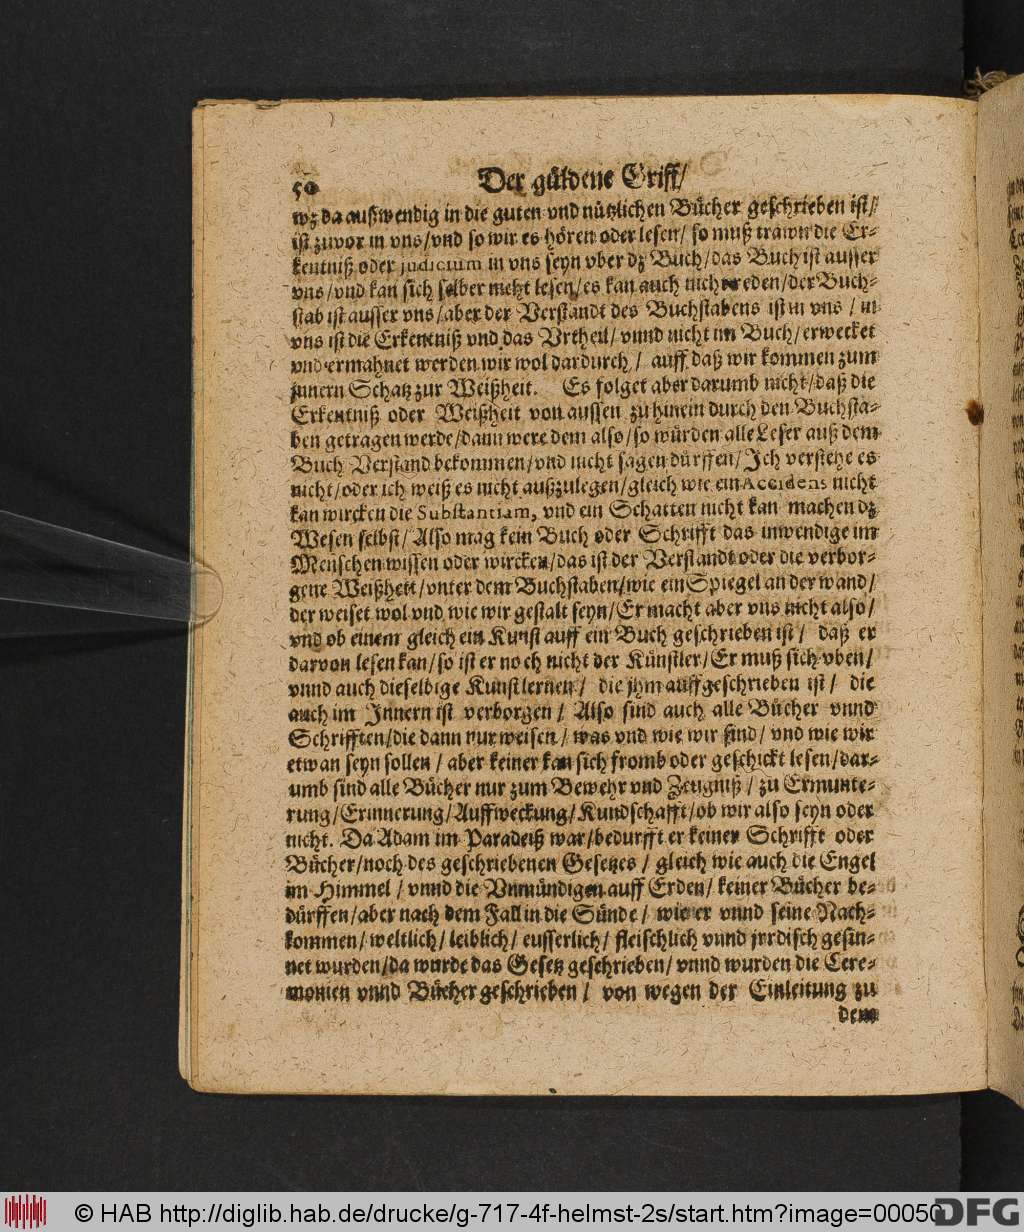 50
Der güldene Griff/
wz da außwendig in die guten vnd nützlichen Bücher geschrieben ist/
ist zuvor in vns/vnd so wir es hören oder lesen/ so muß trawn die Er-
kentniß oder judicium in vns seyn vber dz Buch/das Buch ist ausser
vns/vnd kan sich selber nicht lesen/es kan auch nicht reden/der Buch-
stab ist ausser vns/aber der Verstandt des Buchstabens ist in vns / in
vns ist die Erkentniß vnd das Vrtheil/ vnnd nicht im Buch/erwecket
vnd ermahnet werden wir wol dardurch / auff daß wir kommen zum
innern Schatz zur Weißheit. Es folget aber darumb nicht/daß die
Erkentniß oder Weißheit von aussen zu hinein durch den Buchsta-
ben getragen werde/dann were dem also/so würden alle Leser auß dem
Buch Verstand bekommen/vnd nicht sagen dürffen/Ich verstehe es
nicht/oder ich weiß es nicht außzulegen/gleich wie ein Accidens nicht
kan wircken die Substantiam, vnd ein Schatten nicht kan machen dz
Wesen selbst/Also mag kein Buch oder Schrifft das inwendige im
Menschen wissen oder wircken/das ist der Verstandt oder die verbor-
gene Weißheit/vnter dem Buchstaben/wie ein Spiegel an der wand/
der weiset wol vnd wie wir gestalt seyn/Er macht aber vns nicht also/
vnd ob einem gleich ein Kunst auff ein Buch geschrieben ist / daß er
darvon lesen kan/so ist er noch nicht der Künstler/Er muß sich vben/
vnnd auch dieselbige Kunst lernen / die jhm auffgeschrieben ist / die
auch im Innern ist verborgen / Also sind auch alle Bücher vnnd
Schrifften/die dann nur weisen / was vnd wie wir sind/ vnd wie wir
etwan seyn sollen / aber keiner kan sich fromb oder geschickt lesen/dar-
umb sind alle Bücher nur zum Bewehr vnd Zeugniß / zu Ermunte-
rung/Erinnerung/Auffweckung/Kundschafft/ob wir also seyn oder
nicht. Da Adam im Paradeiß war/bedurfft er keiner Schrifft oder
Bücher/noch des geschriebenen Gesetzes / gleich wie auch die Engel
im Himmel / vnnd die Vnmündigen auff Erden/ keiner Bücher be-
dürffen/aber nach dem Fall in die Sünde / wie er vnnd seine Nach-
kommen/ weltlich/ leiblich/ eusserlich/ fleischlich vnnd jrrdisch gesin-
net wurden/da wurde das Gesetz geschrieben/ vnnd wurden die Cere-
monien vnnd Bücher geschrieben / von wegen der Einleitung zu
dem
© HAB http://diglib.hab.de/drucke/g-717-4f-helmst-2s/start.htm?image=00050
DFG